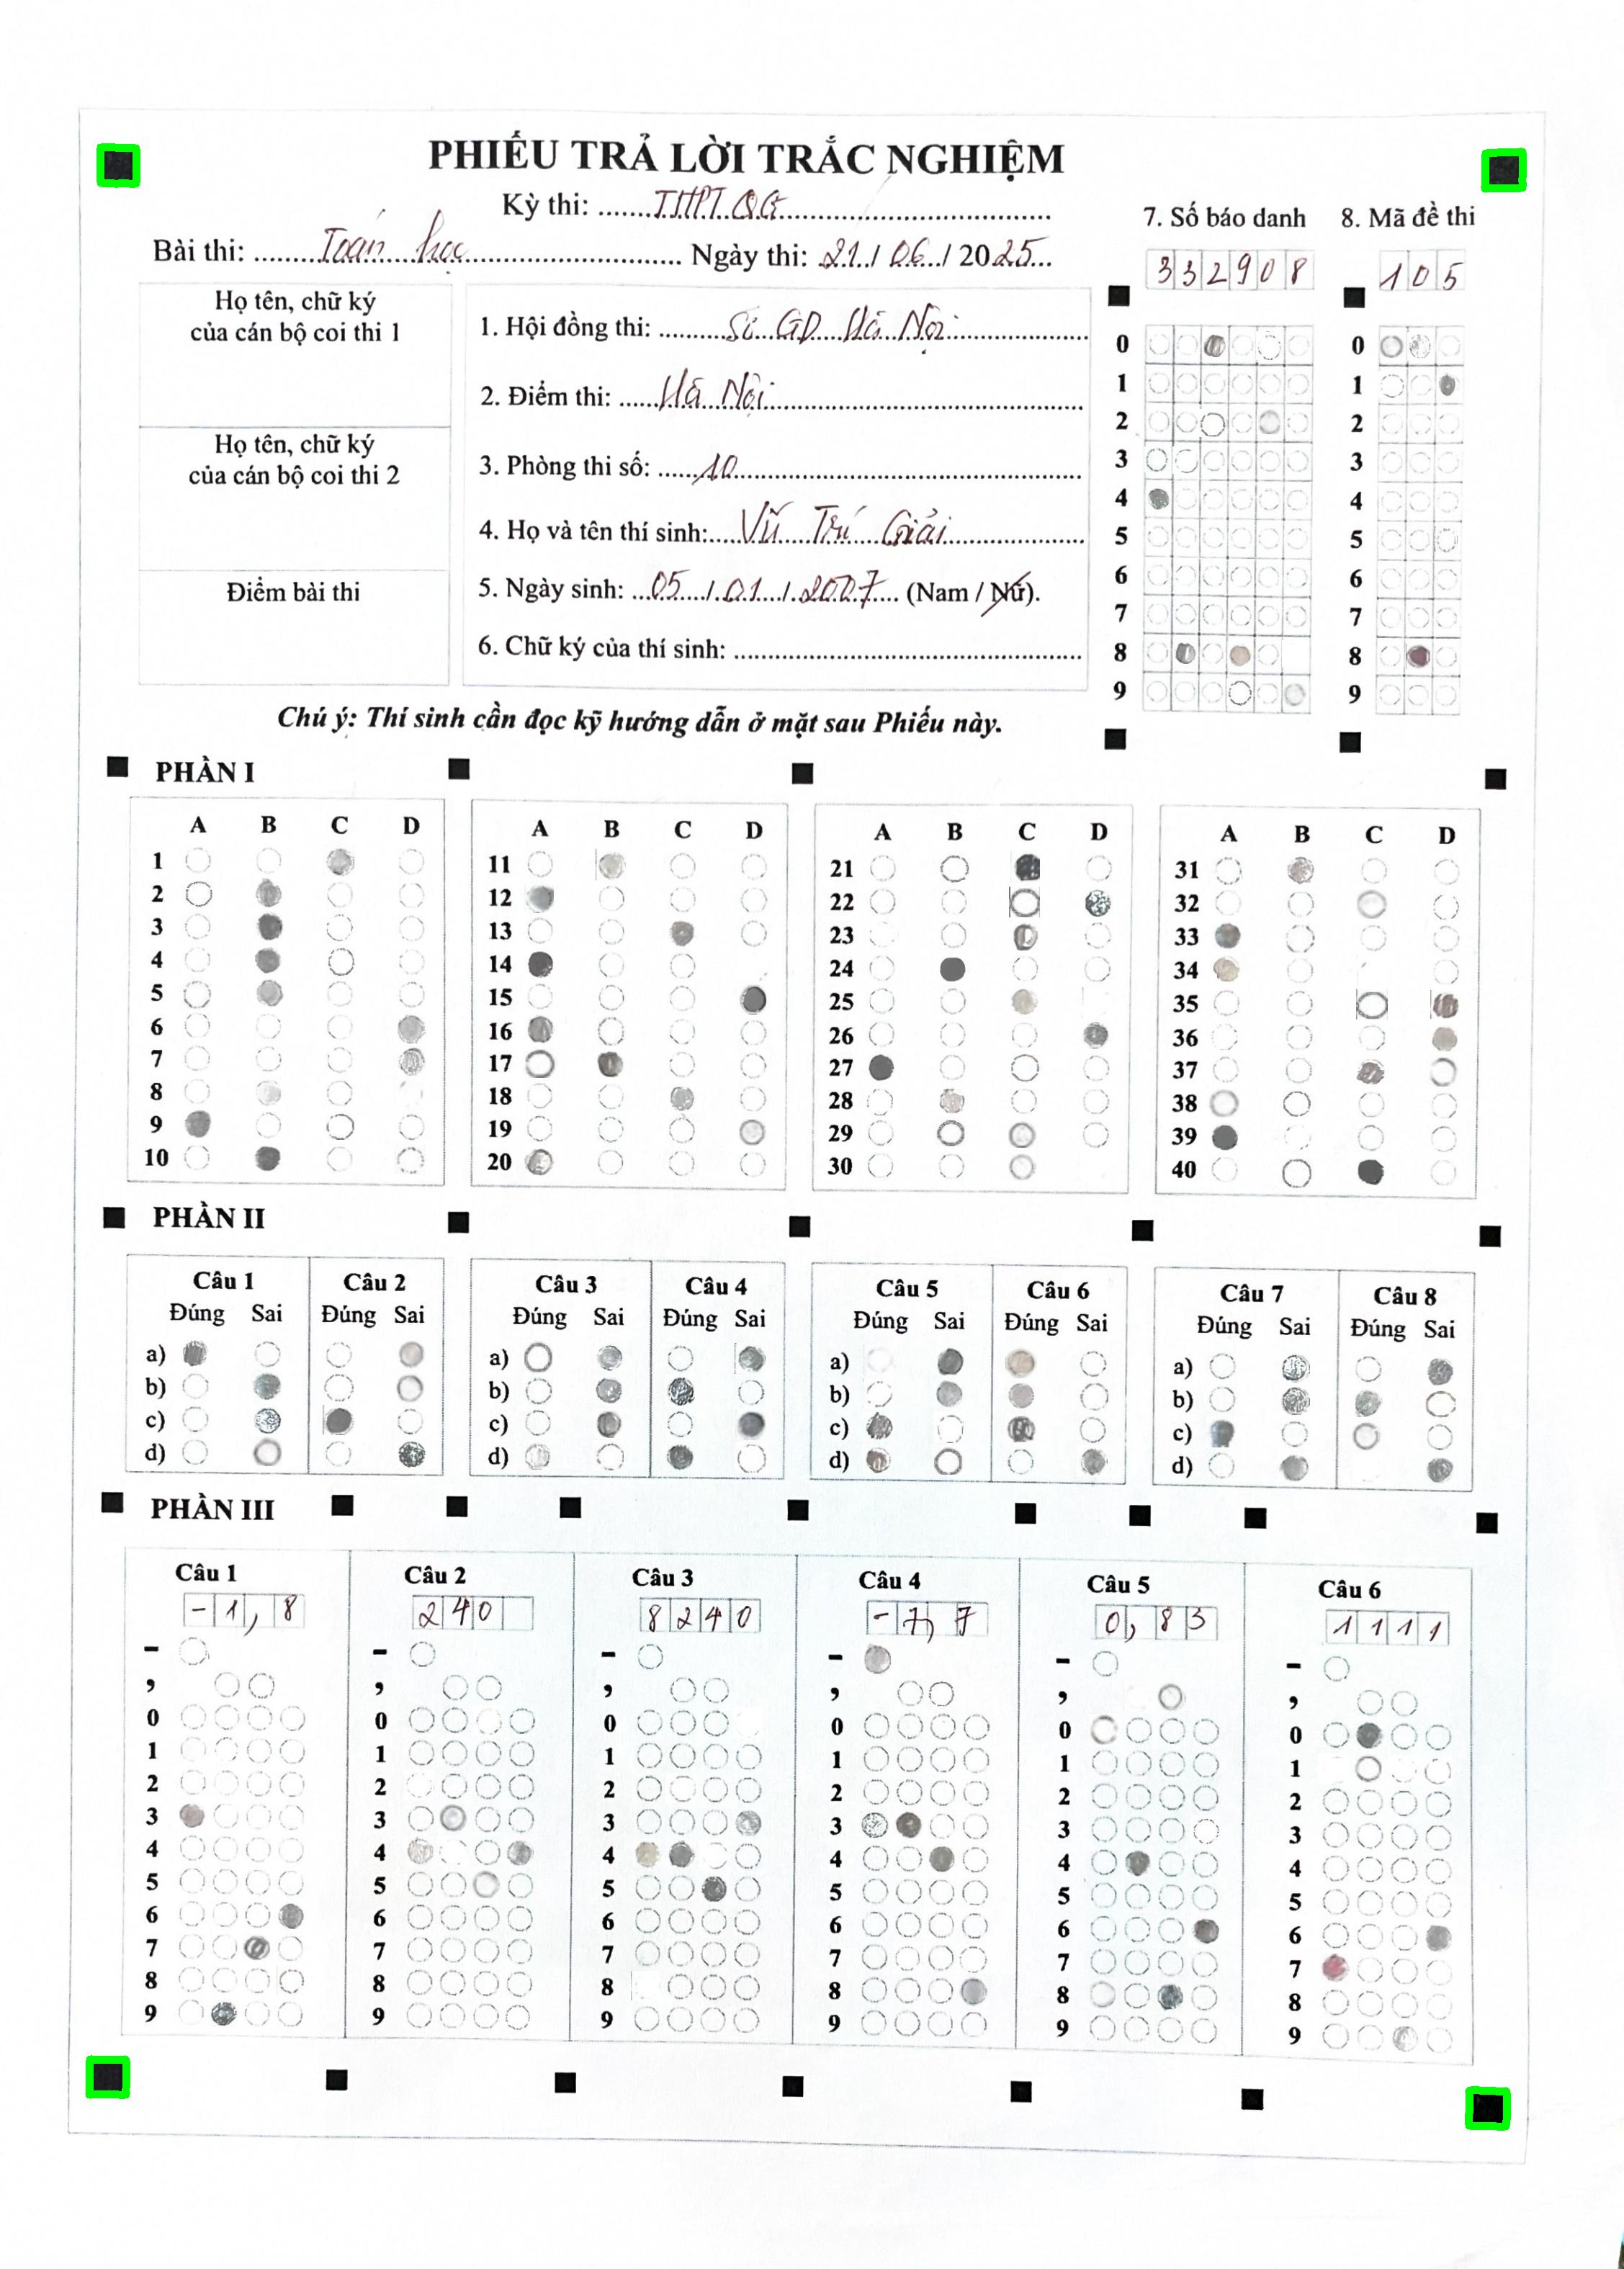 PHIẾU TRẢ LỜI TRẮC NGHIỆM
Kỳ thi: ......THPT QG......
Bài thi: ......Toán học...... Ngày thi: 21/06/2025...
7. Số báo danh
332908
8. Mã đề thi
105
Họ tên, chữ ký
của cán bộ coi thi 1
Họ tên, chữ ký
của cán bộ coi thi 2
Điểm bài thi
1. Hội đồng thi: ......Sở GD Hà Nội......
2. Điểm thi: ......Hà Nội......
3. Phòng thi số: ......10......
4. Họ và tên thí sinh:....Vũ Trí Giải......
5. Ngày sinh: ...05.../.01.../.2007.... (Nam / Nữ).
6. Chữ ký của thí sinh: ......
0 0
1 1
2 2
3 3
4 4
5 5
6 6
7 7
8 8
9 9
Chú ý: Thí sinh cần đọc kỹ hướng dẫn ở mặt sau Phiếu này.
PHẦN I
A B C D
1
2
3
4
5
6
7
8
9
10
A B C D
11
12
13
14
15
16
17
18
19
20
A B C D
21
22
23
24
25
26
27
28
29
30
A B C D
31
32
33
34
35
36
37
38
39
40
PHẦN II
Câu 1 Câu 2
Đúng Sai Đúng Sai
a)
b)
c)
d)
Câu 3 Câu 4
Đúng Sai Đúng Sai
a)
b)
c)
d)
Câu 5 Câu 6
Đúng Sai Đúng Sai
a)
b)
c)
d)
Câu 7 Câu 8
Đúng Sai Đúng Sai
a)
b)
c)
d)
PHẦN III
Câu 1
-1,8
-
,
0
1
2
3
4
5
6
7
8
9
Câu 2
240
-
,
0
1
2
3
4
5
6
7
8
9
Câu 3
8240
-
,
0
1
2
3
4
5
6
7
8
9
Câu 4
-7,7
-
,
0
1
2
3
4
5
6
7
8
9
Câu 5
0,83
-
,
0
1
2
3
4
5
6
7
8
9
Câu 6
1111
-
,
0
1
2
3
4
5
6
7
8
9